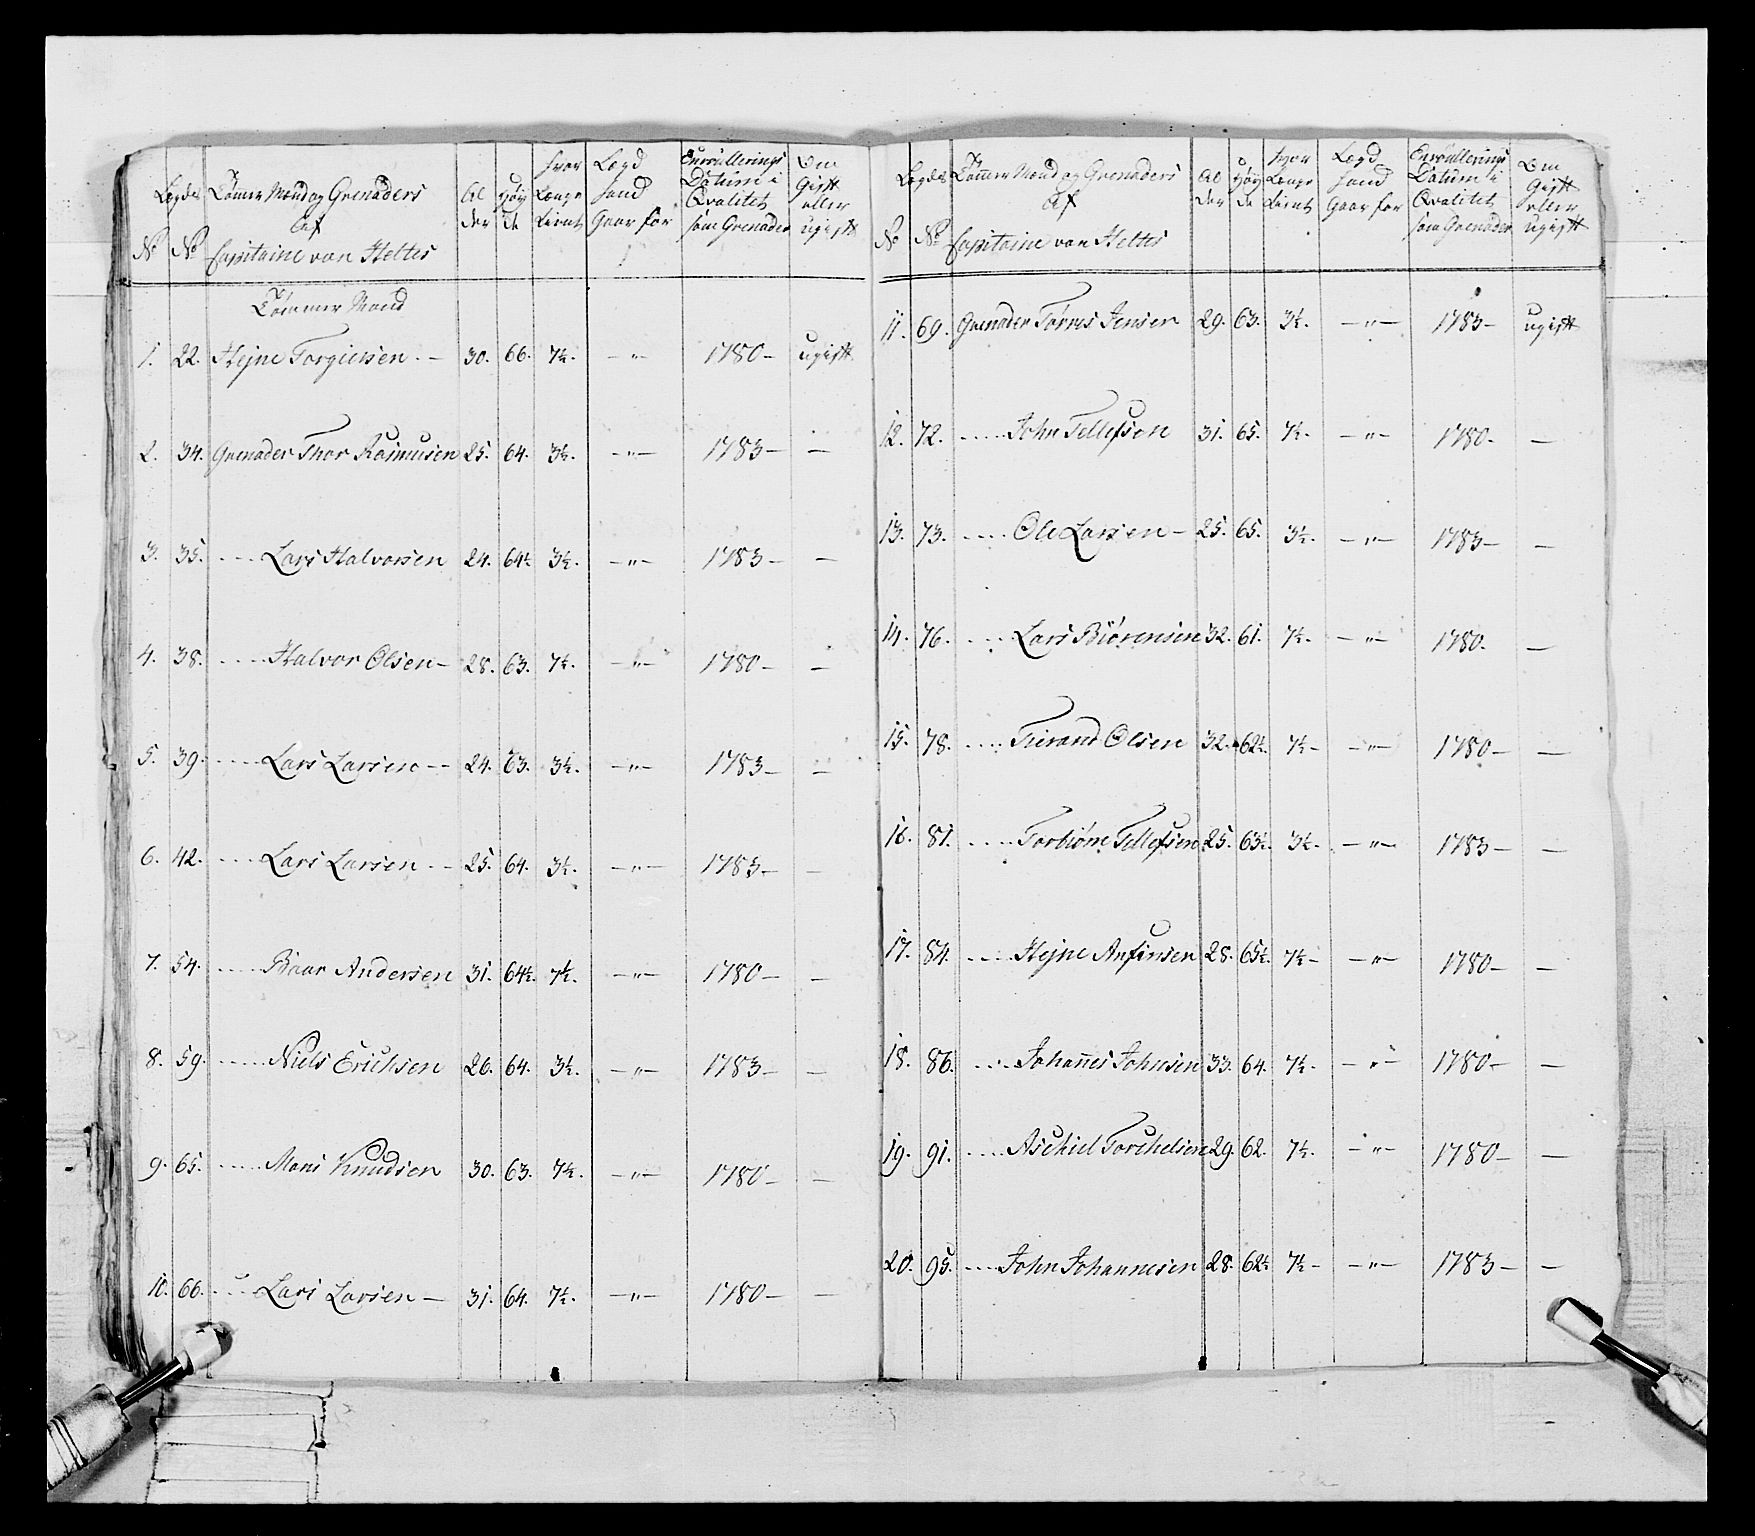 No | Legdes No | Tømmer Mand og Grenaders Af Capitaine von Heltes | Al der | Høy de | hvor Længe tient | Legd hand Gaar for | Enroullerings Datum i Qvalitet som Grenader | Om Gift eller ugift
Tømmer Mand
1. 22. Hejne Torgiersen. – 30. 66. 7½. — „ 1780 – ugift
2. 34. Grenader Thor Rasmusen 25. 64. 3½. —„— 1783 – —
3. 35. ---- Lars Halvorsen 24. 64½ 3½. —„— 1783 – —
4. 38. ---- Halvor Olsen – 28. 63. 7½. —„— 1780 – —
5. 39. ---- Lars Larsen -- 24. 63. 3½. —„— 1783 – —
6. 42. ---- Lars Larsen -- 25. 64. 3½. —„— 1783 – —
7. 54. ---- Baar Andersen 31. 64½. 7½. —„— 1780 – —
8. 59. ---- Niels Erichsen 26. 64. 3½. —„— 1783 – —
9. 65. ---- Mons Knudsen 30. 63. 7½. —„— 1780 – —
10. 66. --- Lars Larsen — 31. 64. 7½. —„— 1780 – —
No | Legdes No | Tømmer Mand og Grenaders Af Capitaine von Heltes | Al der | Høy de | hvor Længe tient | Legd hand Gaar for | Enroullerings Datum i Qvalitet som Grenader | Om Gift eller ugift
11. 69. Grenader Tørres Jensen 29. 63. 3½. —„— 1783 – ugift
12. 72. ---- John Tellefsen 31. 65. 7½. —„— 1780. —
13. 73. ---- Ole Larsen – 25. 65. 3½. —„— 1783 – —
14. 76. ---- Lars Biørensen 32. 61. 7½. —„— 1780. —
15. 78. ---- Tierand Olsen 32. 62½. 7½ – —„— 1780 – —
16. 81. ---- Torbiørn Tellefsen 25. 63½. 3½. —„— 1783 – —
17. 84. ---- Hejne Anfinsen 28. 65½. 7½ – —„— 1780 – —
18. 86. --- Johan̄es Johnsen 33. 64. 7½. —„— 1780 – —
19. 91. ---- Aschiel Torchelsen 29. 62. 7½. —„— 1780 – —
20. 95. ---- John Johannesen 28. 62½ 7½ – —„— 1783 – —